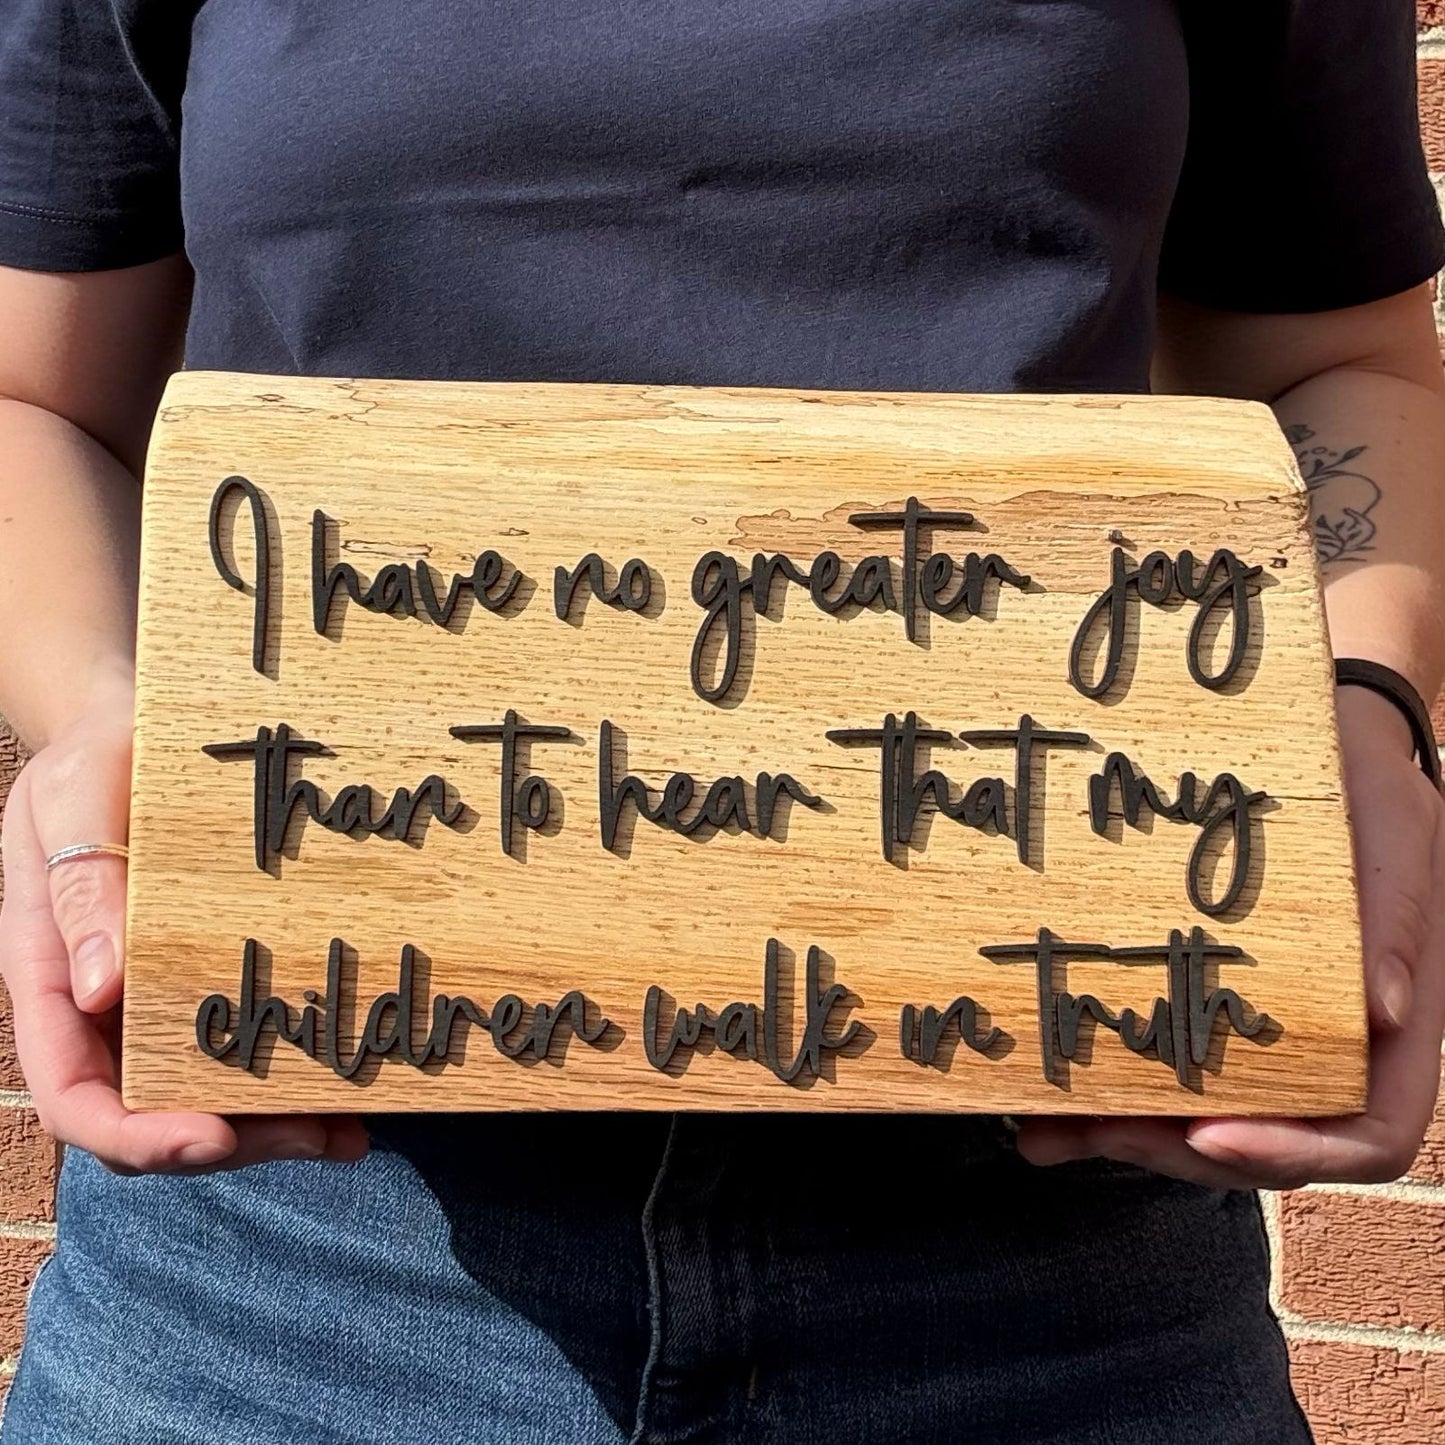 I have no greater joy
than to hear that my
children walk in truth